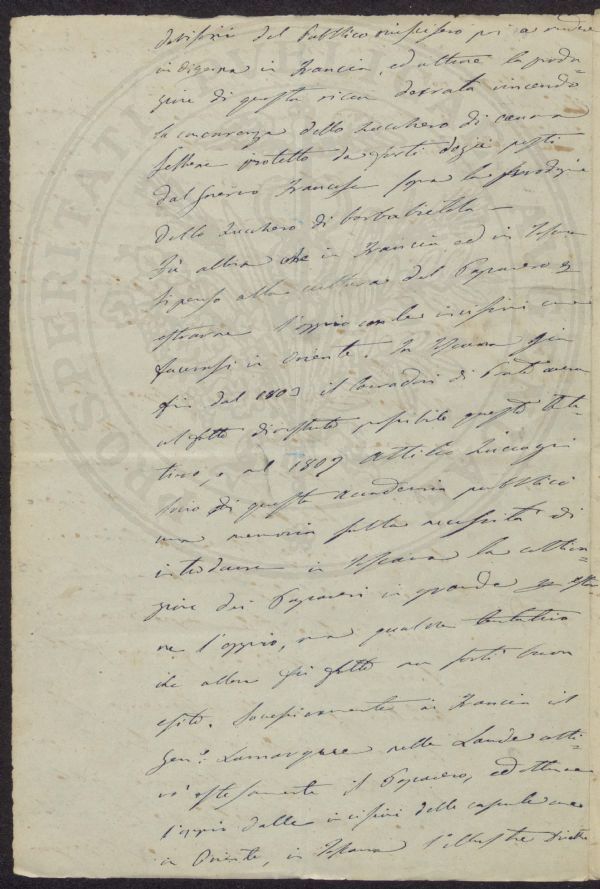 divisioni del Pubblico
in Francia, ed ottiene la produ-
zione di questa ricca derrata vincendo
la concorrenza dello zucchero di canna
sebbene protetto da forti dazi posti
dal Governo Francese sopra la produzione
dello zucchero di barbabietola —
Fù allora che in Francia ed in Toscana
si pensò alla cultura del Papavero
estrarne l'oppio con le incisioni come
facevasi in Oriente. In Toscana fin
fin dal 1803 il di Prato aveva
al fatto dimostrato possibile questo tenta-
tivo, e nel 1809 Attilio Zuccagni
Socio di questa Accademia pubblicò
una memoria sulla necessità di
introdurre in Toscana la cultiva-
zione dei Papaveri in grande per estrar
ne l'oppio, ma qualche tentativo
che allora fù fatto non sortì buon
esito. Successivamente in Francia il
Gen.e Lamarque nelle Lande colti-
vò estesamente il Papavero, ed ottenne
l'oppio dalle incisioni delle capsule come
in Oriente, in Toscana l'illustre
PROSPERITATI